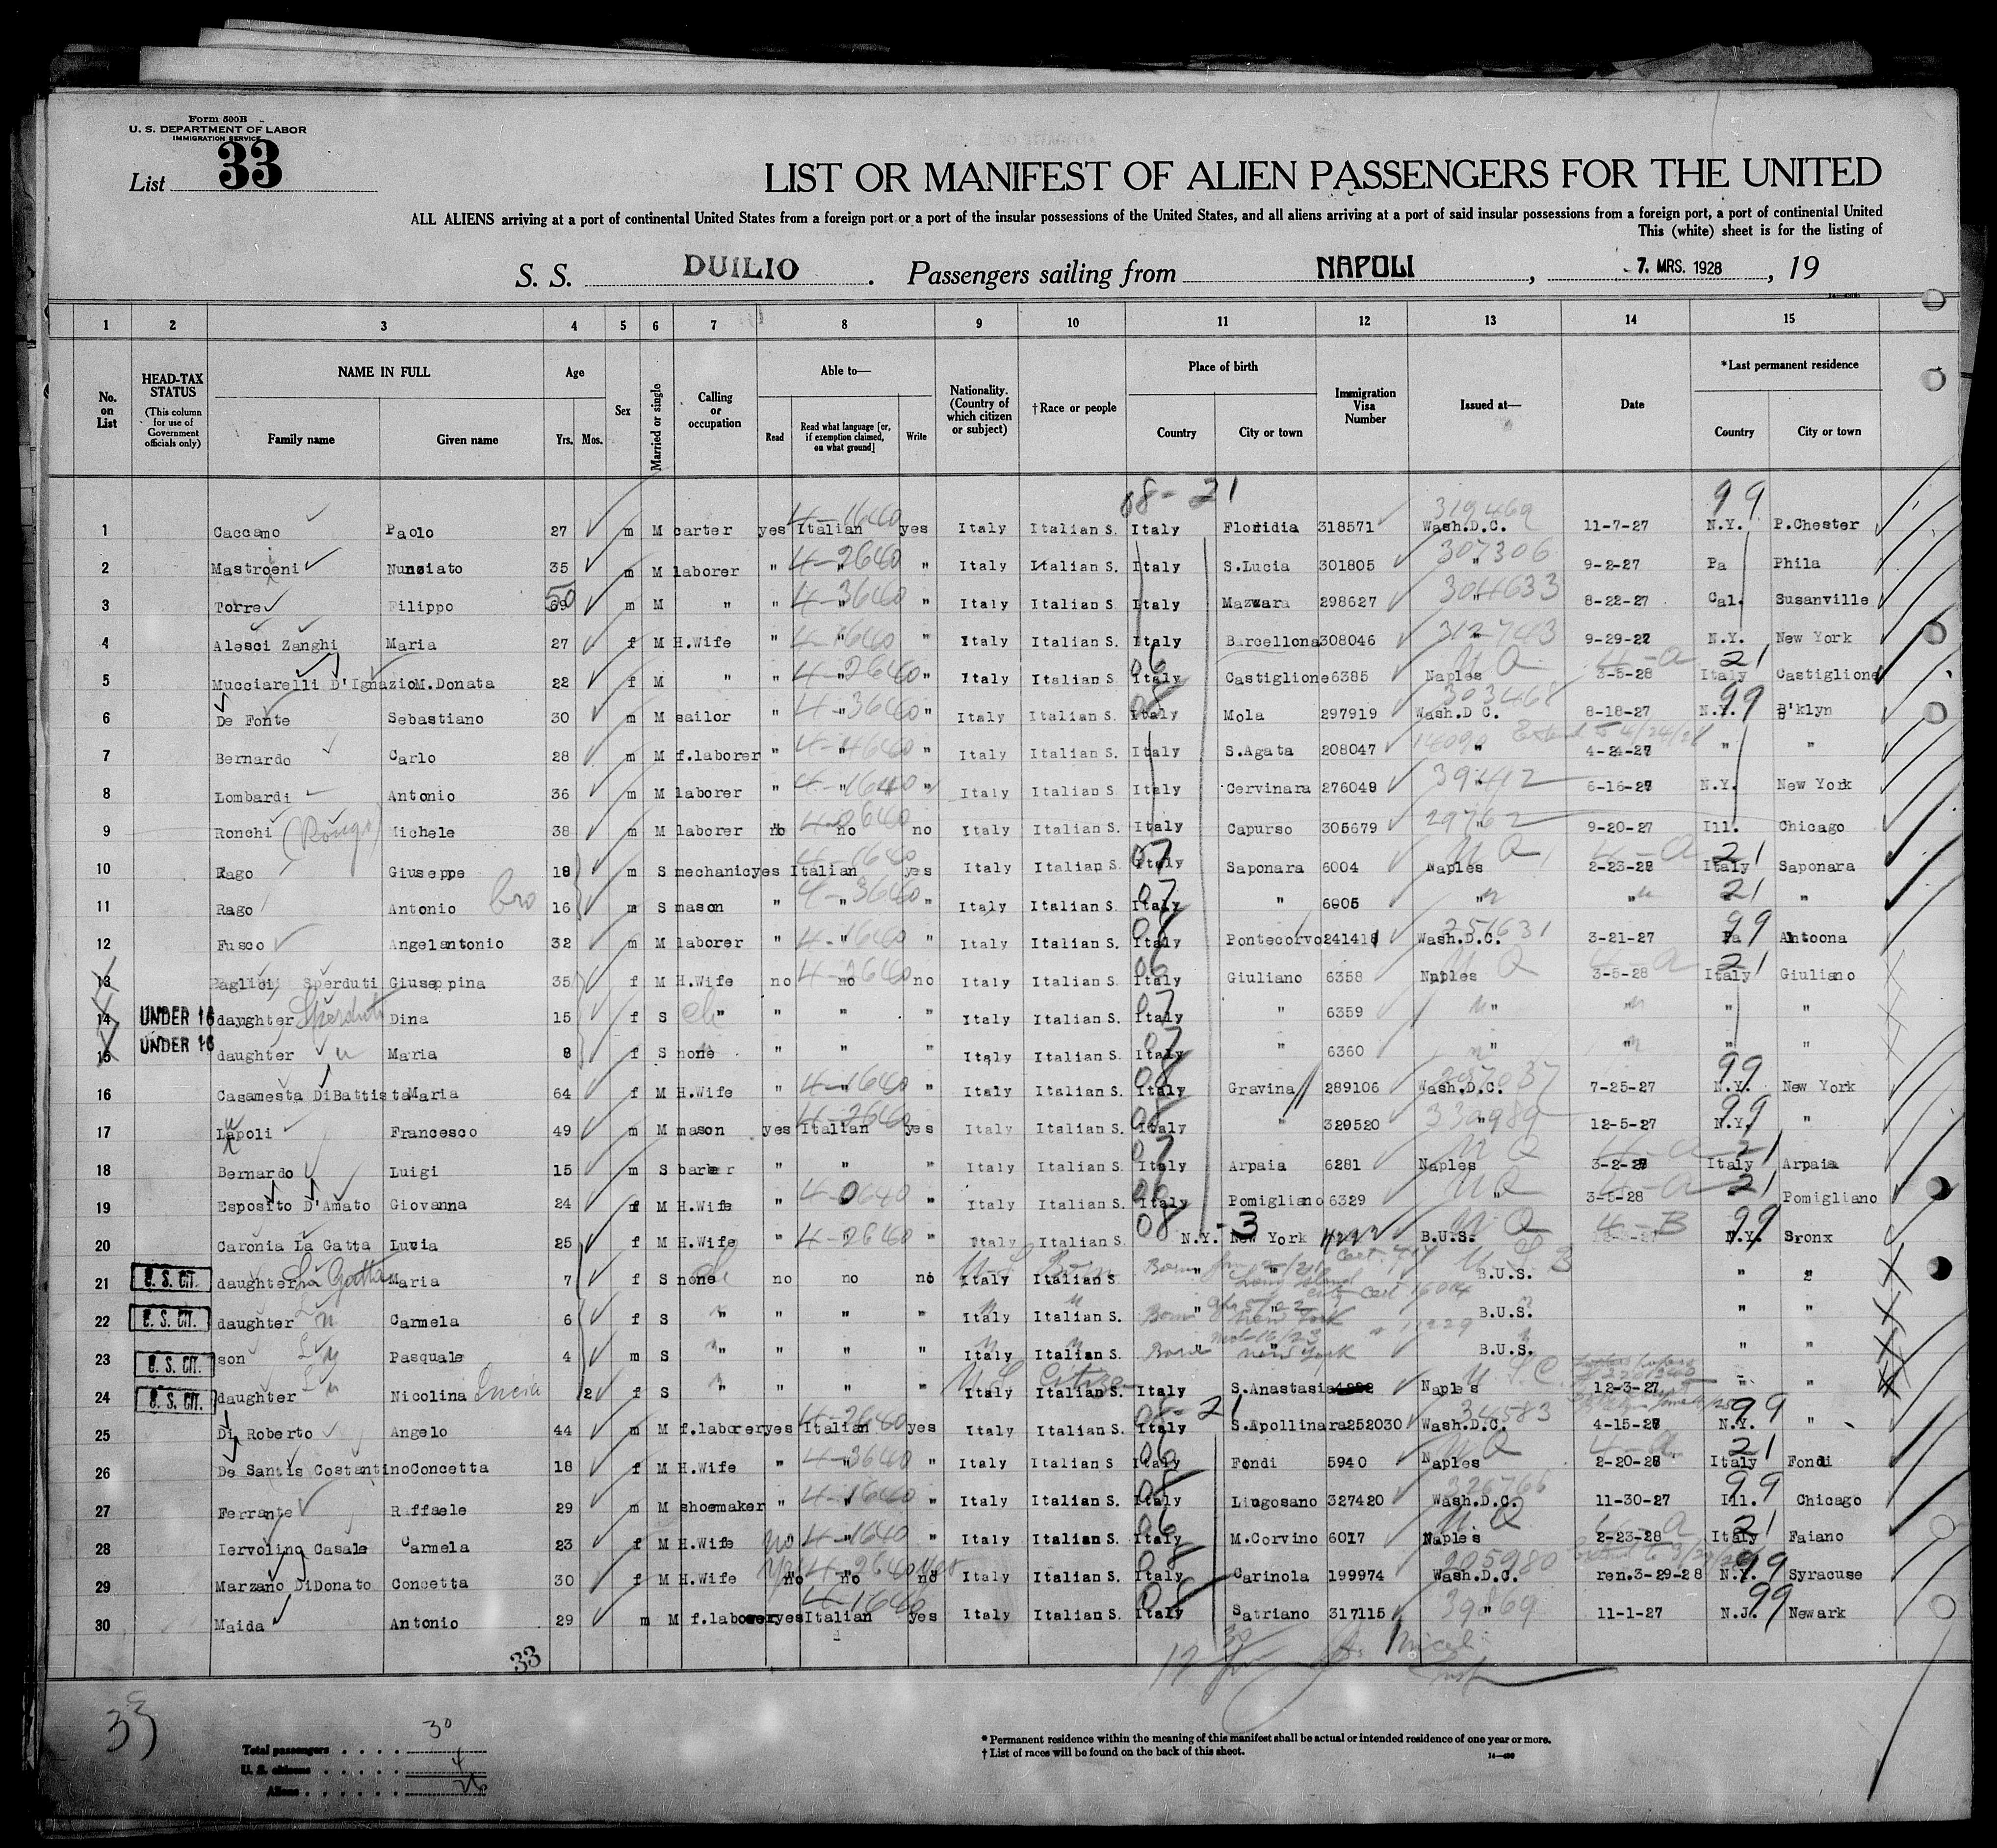 Form 500B
U. S. DEPARTMENT OF LABOR
IMMIGRATION SERVICE
List 33
LIST OR MANIFEST OF ALIEN PASSENGERS FOR THE UNITED
ALL ALIENS arriving at a port of continental United States from a foreign port or a port of the insular possessions of the United States, and all aliens arriving at a port of said insular possessions from a foreign port, a port of continental United
This (white) sheet is for the listing of
S. S. DUILIO. Passengers sailing from NAPOLI, 7. MRS. 1928, 19
1 2 3 4 5 6 7 8 9 10 11 12 13 14 15
No. on List
HEAD-TAX STATUS (This column for use of Government officials only)
NAME IN FULL
Family name Given name
Age
Yrs. Mos.
Sex
Married or single
Calling or occupation
Able to—
Read Read what language [or, if exemption claimed, on what ground] Write
Nationality. (Country of which citizen or subject)
†Race or people
Place of birth
Country City or town
Immigration Visa Number
Issued at—
Date
*Last permanent residence
Country City or town
08-21 319469 99
1 Caccamo Paolo 27 m M carter yes Italian 4-1640 yes Italy Italian S. Italy Floridia 318571 Wash.D.C. 11-7-27 N.Y. P.Chester
2 Mastroeni Nunziato 35 m M laborer " 4-2640 " " Italy Italian S. Italy S.Lucia 301805 307306 " 9-2-27 Pa Phila
3 Torre Filippo 50 m M " " 4-3640 " Italy Italian S. Italy Mazzara 298627 304633 " 8-22-27 Cal. Susanville
4 Alesci Zanghi Maria 27 f M H.Wife " 4-1640 " " Italy Italian S. Italy Barcellona 308046 312743 " 9-29-27 N.Y. New York
5 Mucciarelli D'Ignazio M.Donata 22 f M " " 4-2640 " " Italy Italian S. 06 Italy Castiglione 6385 Naples 3-5-28 21 Italy Castiglione
6 De Fonte Sebastiano 30 m M sailor " 4-3640 " " Italy Italian S. 08 Italy Mola 297919 303468 Wash.D C. 8-18-27 N.Y. 99 B'klyn
7 Bernardo Carlo 28 m M f.laborer " 4-4640 " Italy Italian S. Italy S.Agata 208047 14090 " 4-24-27 " "
8 Lombardi Antonio 36 m M laborer " 4-1640 " " Italy Italian S. Italy Cervinara 276049 39442 " 6-16-27 N.Y. New York
9 Ronchi Michele 38 m M laborer no 4-2640 no no Italy Italian S. Italy Capurso 305679 29762 " 9-20-27 Ill. Chicago
10 Rago Giuseppe 18 m S mechanic yes Italian 4-1640 yes Italy Italian S. 07 Italy Saponara 6004 Naples 2-23-28 21 Italy Saponara
11 Rago Antonio bro 16 m S mason " 4-3640 " " Italy Italian S. 07 Italy " 6005 " " 21 "
12 Fusco Angelantonio 32 m M laborer " 4-1640 " " Italy Italian S. 08 Italy Pontecorvo 241418 251631 Wash.D.C. 3-21-27 99 Pa Altoona
13 Sperduti Giuseppina 35 f M H.Wife no 4-2640 no no Italy Italian S. 06 Italy Giuliano 6358 Naples 3-5-28 21 Italy Giuliano
14 UNDER 16 daughter Sperduti Dina 15 f S " " " " Italy Italian S. 07 Italy " 6359 " " " "
15 UNDER 16 daughter Maria 8 f S none " " " Italy Italian S. 07 Italy " 6360 " " " "
16 Casamesta DiBattista Maria 64 f M H.Wife " 4-1640 " " Italy Italian S. 08 Italy Gravina 289106 Wash.D.C. 7-25-27 99 N.Y. New York
17 Lupoli Francesco 49 m M mason yes 4-2640 Italian yes Italy Italian S. 08 Italy " 329520 330989 " 12-5-27 99 N.Y. "
18 Bernardo Luigi 15 m S barber " " " Italy Italian S. 07 Italy Arpaia 6281 Naples 3-2-28 21 Italy Arpaia
19 Esposito D'Amato Giovanna 24 f M H.Wife " 4-0640 " Italy Italian S. 06 Italy Pomigliano 6329 " 3-5-28 21 Pomigliano
20 Caronia La Gatta Lucia 25 f M H.Wife " 4-2640 " " Italy Italian S. 08-3 N.Y. New York B.U.S. 4-B 99 N.Y. Bronx
21 U. S. CIT. daughter La Gatta Maria 7 f S none no no no Italy Italian S. U.S. Born B.U.S. " "
22 U. S. CIT. daughter Carmela 6 f S " " " " Italy Italian S. Born New York B.U.S. " "
23 U. S. CIT. son Pasquale 4 m S " " " " Italy Italian S. Born New York B.U.S. " "
24 U. S. CIT. daughter Nicolina Lucia 2 f S " " " " U.S. Citizen Italian S. Italy S.Anastasia Naples 12-3-27 " "
25 Di Roberto Angelo 44 m M f.laborer yes 4-2640 Italian yes Italy Italian S. 08-21 Italy S.Apollinara 252030 Wash.D.C. 4-15-28 99 N.Y. "
26 De Santis Costantino Concetta 18 f M H.Wife " 4-3640 " " Italy Italian S 06 Italy Fondi 5940 Naples 2-20-28 21 Italy Fondi
27 Ferrante Raffaele 29 m M shoemaker " 4-1640 " Italy Italian S. 08 Italy Lingosano 327420 Wash.D.C. 11-30-27 99 Ill. Chicago
28 Iervolino Casale Carmela 23 f M H.Wife " 4-1640 " " Italy Italian S. 06 Italy M.Corvino 6017 Naples 2-23-28 21 Italy Faiano
29 Marzano DiDonato Concetta 30 f M H.Wife no 4-2640 no no Italy Italian S. 08 Italy Carinola 199974 205980 Wash.D.C. ren.3-29-28 99 N.Y. Syracuse
30 Maida Antonio 29 m M f.laborer yes 4-1640 Italian yes Italy Italian S. 08 Italy Satriano 317115 39869 " 11-1-27 N.J. 99 Newark
33
33
Total passengers . . . . 30
U. S. citizens . . . . . 4
Aliens . . . . . . 26
* Permanent residence within the meaning of this manifest shall be actual or intended residence of one year or more.
† List of races will be found on the back of this sheet.